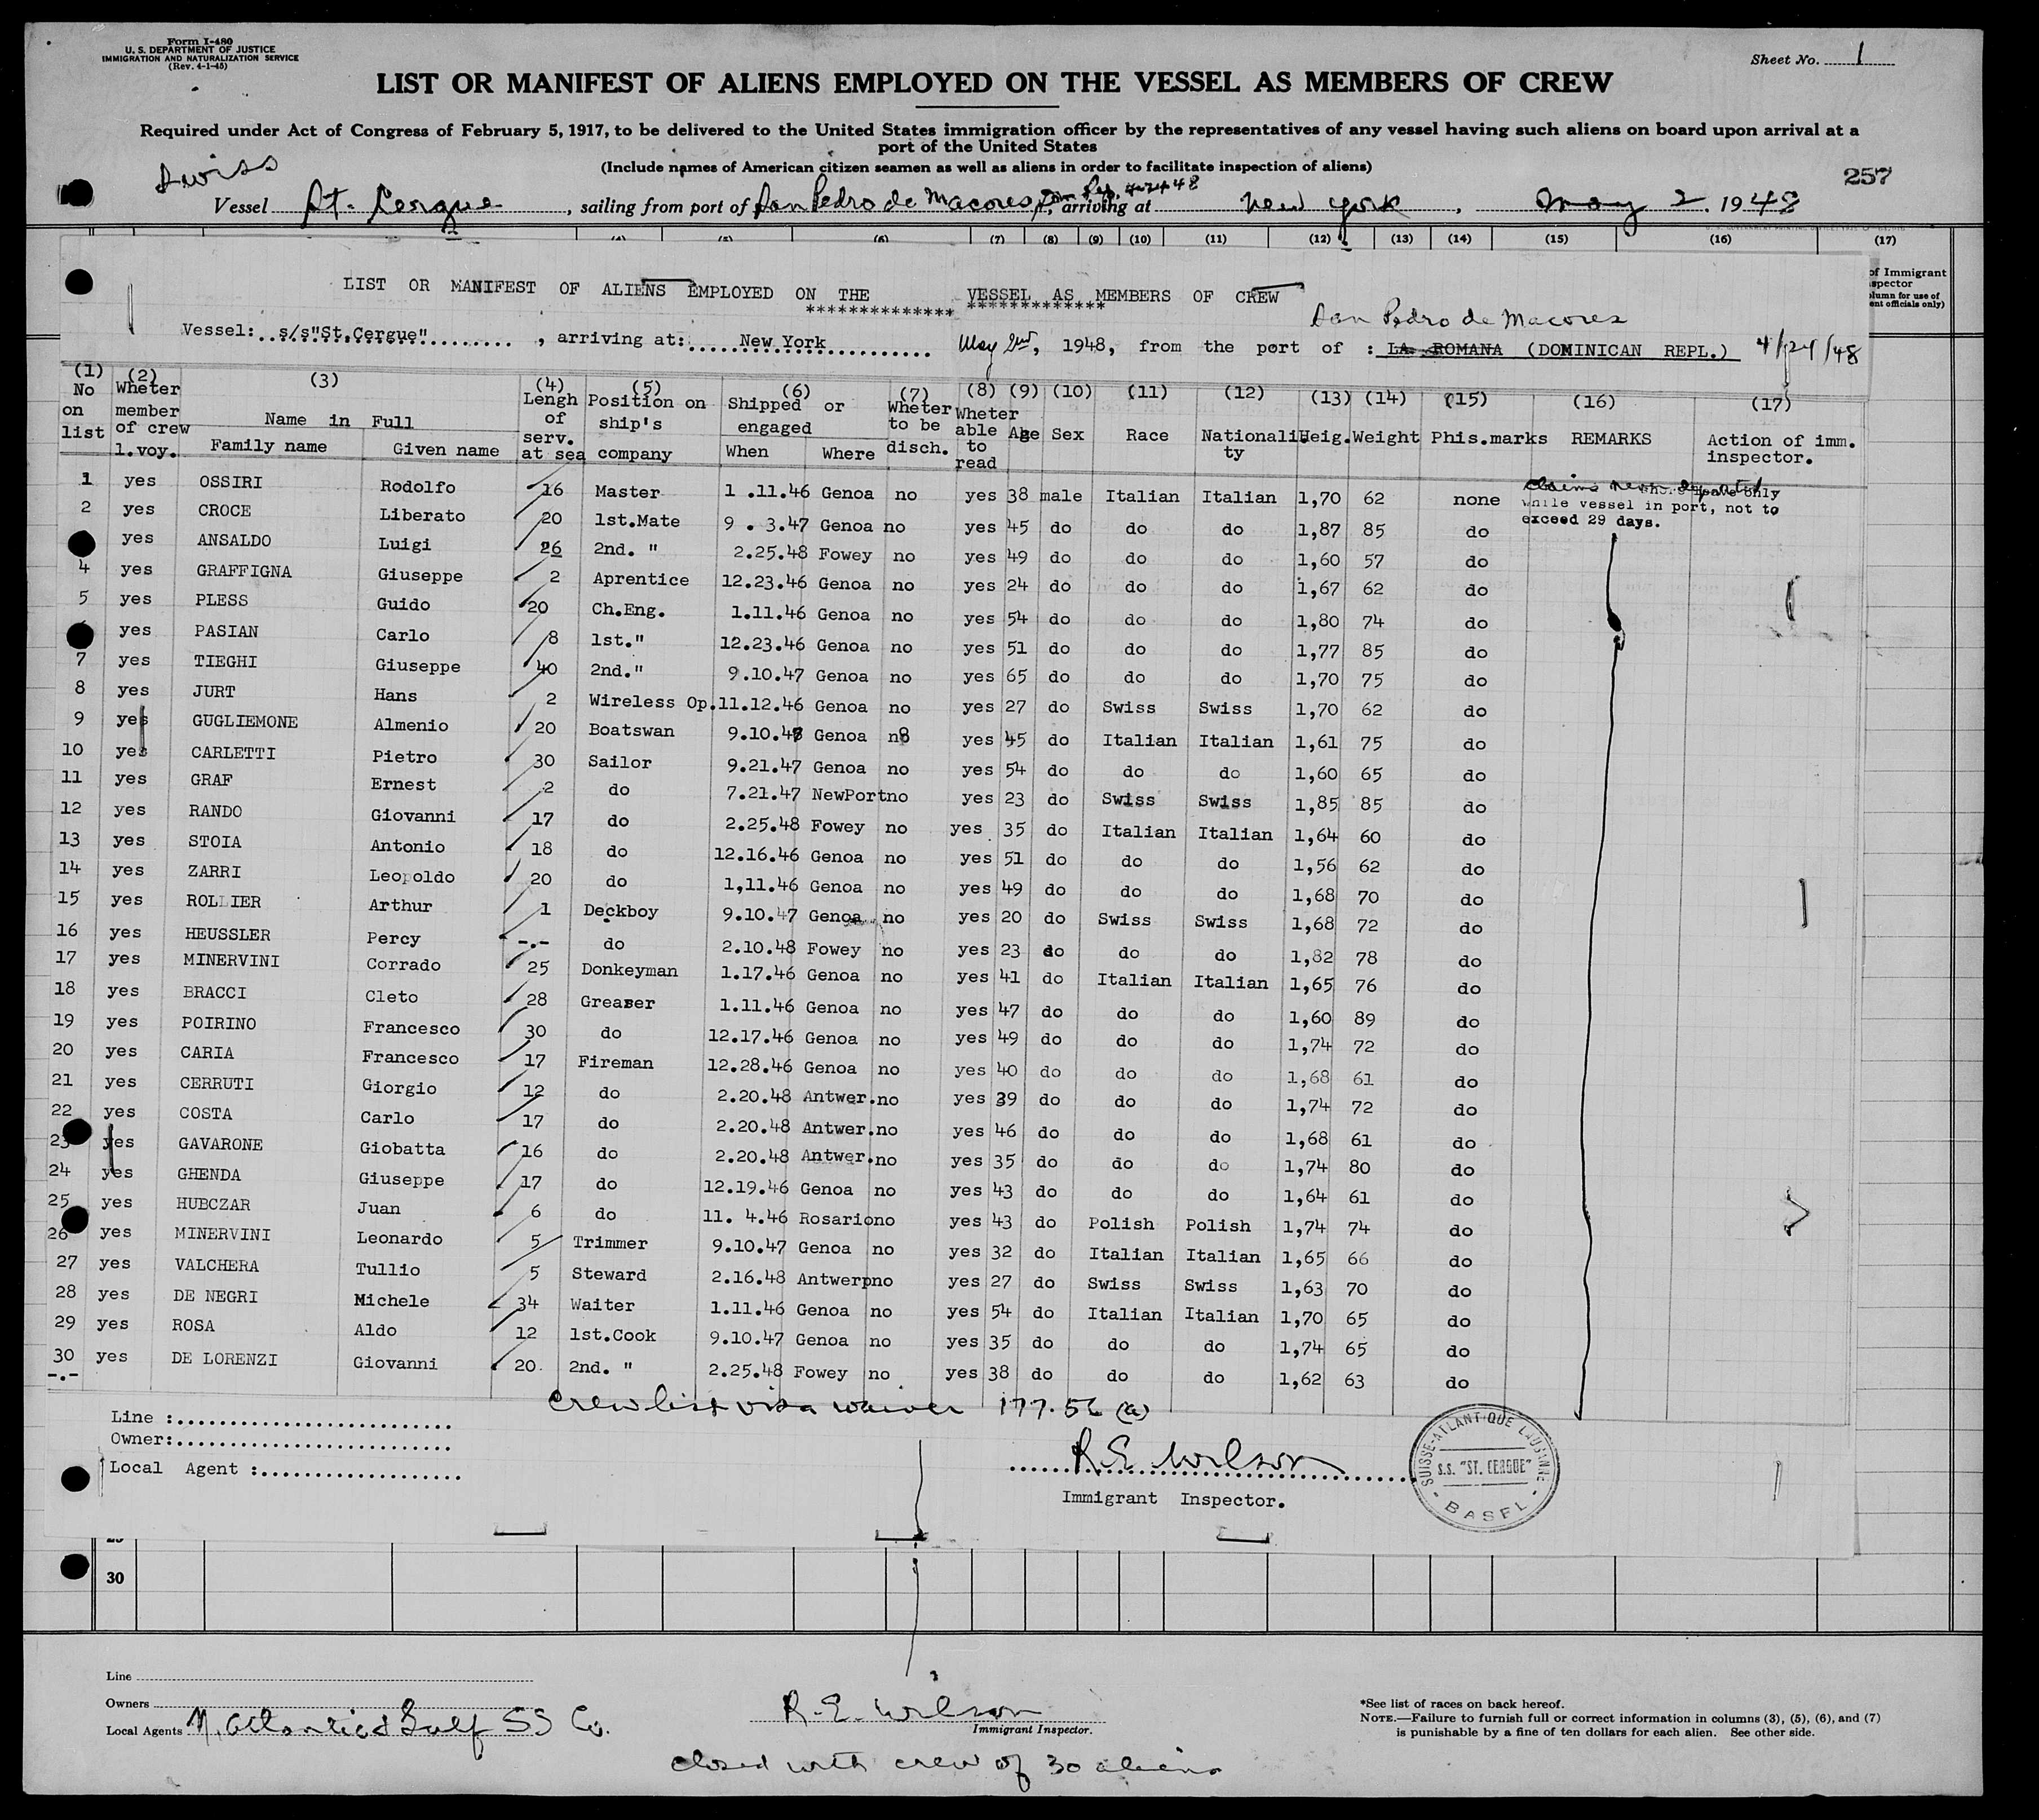 Form I-480
U. S. DEPARTMENT OF JUSTICE
IMMIGRATION AND NATURALIZATION SERVICE
(Rev. 4-1-45)
Sheet No. 1
LIST OR MANIFEST OF ALIENS EMPLOYED ON THE VESSEL AS MEMBERS OF CREW
Required under Act of Congress of February 5, 1917, to be delivered to the United States immigration officer by the representatives of any vessel having such aliens on board upon arrival at a
port of the United States
(Include names of American citizen seamen as well as aliens in order to facilitate inspection of aliens)
257
Swiss
Vessel St. Cergue, sailing from port of San Pedro de Macores, arriving at New York, May 2, 1948
(7) (8) (9) (10) (11) (12) (13) (14) (15) (16) (17)
of Immigrant
LIST OR MANIFEST OF ALIENS EMPLOYED ON THE VESSEL AS MEMBERS OF CREW
************** *************
San Pedro de Macores
Vessel: s/s"St.Cergue", arriving at: New York May 2nd, 1948, from the port of : LA ROMANA (DOMINICAN REPL.) 4/24/48
(1) (2) (3) (4) (5) (6) (7) (8) (9) (10) (11) (12) (13) (14) (15) (16) (17)
No Wheter Lengh Position on Shipped or Wheter Wheter
on member Name in Full of ship's engaged to be able Age Sex Race Nationali Heig. Weight Phis.marks REMARKS Action of imm.
list of crew Family name Given name serv. disch. to ty inspector.
l.voy. at sea company When Where read
1 yes OSSIRI Rodolfo 16 Master 1 .11.46 Genoa no yes 38 male Italian Italian 1,70 62 none
2 yes CROCE Liberato 20 1st.Mate 9 . 3.47 Genoa no yes 45 do do do 1,87 85 do
while vessel in port, not to
exceed 29 days.
yes ANSALDO Luigi 26 2nd. " 2.25.48 Fowey no yes 49 do do do 1,60 57 do
4 yes GRAFFIGNA Giuseppe 2 Aprentice 12.23.46 Genoa no yes 24 do do do 1,67 62 do
5 yes PLESS Guido 20 Ch.Eng. 1.11.46 Genoa no yes 54 do do do 1,80 74 do
yes PASIAN Carlo 8 1st." 12.23.46 Genoa no yes 51 do do do 1,77 85 do
7 yes TIEGHI Giuseppe 40 2nd." 9.10.47 Genoa no yes 65 do do do 1,70 75 do
8 yes JURT Hans 2 Wireless Op. 11.12.46 Genoa no yes 27 do Swiss Swiss 1,70 62 do
9 yes GUGLIEMONE Almenio 20 Boatswan 9.10.47 Genoa no yes 45 do Italian Italian 1,61 75 do
10 yes CARLETTI Pietro 30 Sailor 9.21.47 Genoa no yes 54 do do do 1,60 65 do
11 yes GRAF Ernest 2 do 7.21.47 NewPort no yes 23 do Swiss Swiss 1,85 85 do
12 yes RANDO Giovanni 17 do 2.25.48 Fowey no yes 35 do Italian Italian 1,64 60 do
13 yes STOIA Antonio 18 do 12.16.46 Genoa no yes 51 do do do 1,56 62 do
14 yes ZARRI Leopoldo 20 do 1,11.46 Genoa no yes 49 do do do 1,68 70 do
15 yes ROLLIER Arthur 1 Deckboy 9.10.47 Genoa no yes 20 do Swiss Swiss 1,68 72 do
16 yes HEUSSLER Percy -.- do 2.10.48 Fowey no yes 23 do do do 1,82 78 do
17 yes MINERVINI Corrado 25 Donkeyman 1.17.46 Genoa no yes 41 do Italian Italian 1,65 76 do
18 yes BRACCI Cleto 28 Greaser 1.11.46 Genoa no yes 47 do do do 1,60 89 do
19 yes POIRINO Francesco 30 do 12.17.46 Genoa no yes 49 do do do 1,74 72 do
20 yes CARIA Francesco 17 Fireman 12.28.46 Genoa no yes 40 do do do 1,68 61 do
21 yes CERRUTI Giorgio 12 do 2.20.48 Antwer. no yes 39 do do do 1,74 72 do
22 yes COSTA Carlo 17 do 2.20.48 Antwer. no yes 46 do do do 1,68 61 do
23 yes GAVARONE Giobatta 16 do 2.20.48 Antwer. no yes 35 do do do 1,74 80 do
24 yes GHENDA Giuseppe 17 do 12.19.46 Genoa no yes 43 do do do 1,64 61 do
25 yes HUBCZAR Juan 6 do 11. 4.46 Rosario no yes 43 do Polish Polish 1,74 74 do
26 yes MINERVINI Leonardo 5 Trimmer 9.10.47 Genoa no yes 32 do Italian Italian 1,65 66 do
27 yes VALCHERA Tullio 5 Steward 2.16.48 Antwerp no yes 27 do Swiss Swiss 1,63 70 do
28 yes DE NEGRI Michele 34 Waiter 1.11.46 Genoa no yes 54 do Italian Italian 1,70 65 do
29 yes ROSA Aldo 12 1st.Cook 9.10.47 Genoa no yes 35 do do do 1,74 65 do
30 yes DE LORENZI Giovanni 20. 2nd. " 2.25.48 Fowey no yes 38 do do do 1,62 63 do
-.-
Crew list visa waiver 177.56 (a)
Line :
Owner:
Local Agent :
R.E. Wilson
Immigrant Inspector.
SUISSE-ATLANTIQUE LAUSANNE
S.S. "ST. CERGUE"
- BASEL -
30
Line
Owners
Local Agents N. Atlantic & Gulf SS Co.
R.E. Wilson
Immigrant Inspector.
closed with crew of 30 aliens
*See list of races on back hereof.
NOTE.—Failure to furnish full or correct information in columns (3), (5), (6), and (7)
is punishable by a fine of ten dollars for each alien. See other side.